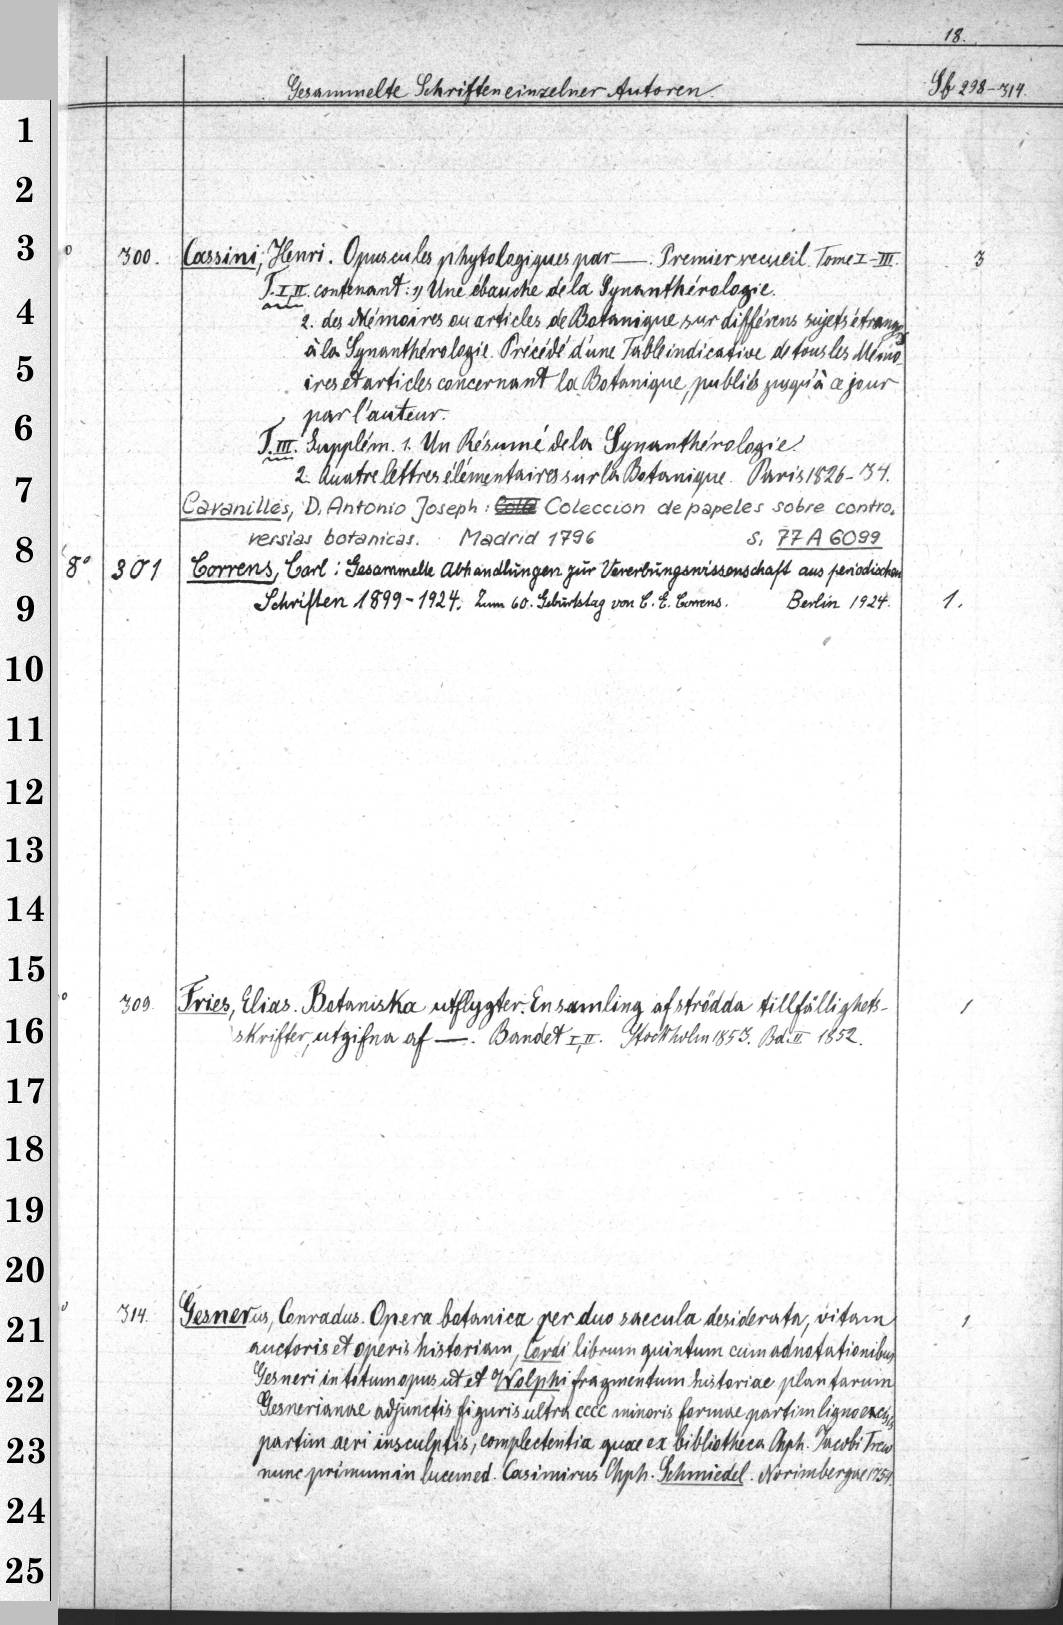 18.
Gesammelte Schriften einzelner Autoren. Sb 298-314.
1
2
3
4
5
6
7
8
9
10
11
12
13
14
15
16
17
18
19
20
21
22
23
24
25
0 300. Cassini, Henri. Opuscules phytologiques par —. Premier recueil. Tome I-III. 3
T. I, II. contenant: 1) Une ébauche de la Synanthérologie.
2. des Mémoires ou articles de Botanique sur différens sujets étrangers
à la Synanthérologie. Précédé d'une Table indicative de tous les Mémo-
ires et articles concernant la Botanique, publiés jusqu'à ce jour
par l'auteur.
T. III. Supplém. 1. Un Résumé de la Synanthérologie.
2. Quatre lettres élémentaires sur la Botanique. Paris 1826-34.
Cavanilles, D. Antonio Joseph: Coleccion de papeles sobre contro-
versias botanicas. Madrid 1796 s. 77 A 6099
8° 301 Correns, Carl: Gesammelte Abhandlungen zur Vererbungswissenschaft aus periodischen
Schriften 1899-1924. Zum 60. Geburtstag von C. E. Correns. Berlin 1924. 1.
0 309. Fries, Elias. Botaniska utflygter. En samling af strödda tillfällighets-
skrifter, utgifna af —. Bandet I, II. Stockholm 1853. Bd. II 1852. 1
0 314. Gesnerus, Conradus. Opera botanica per duo saecula desiderata, vitam 1
auctoris et operis historiam, Cordi librum quintum cum adnotationibus
Gesneri in totum opus ut et Wolphi fragmentum historiae plantarum
Gesnerianae adjunctis figuris ultra CCCC minoris formae partim ligno excisis
partim aeri insculptis, complectentia quae ex bibliotheca Chph. Jacobi Trew
nunc primum in lucem ed. Casimirus Chph. Schmiedel. Norimbergae 1751.